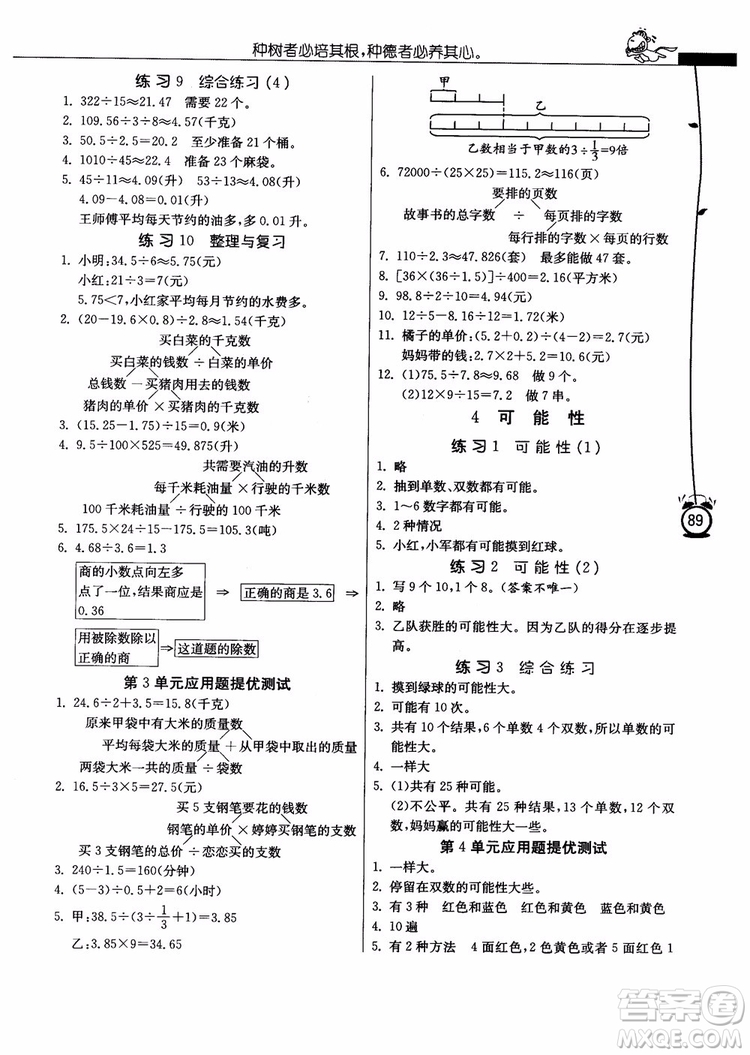 种树者必培其根,种德者必养其心。
练习9 综合练习(4)
1. 322÷15≈21.47 需要 22 个。
2. 109.56÷3÷8≈4.57(千克)
3. 50.5÷2.5=20.2(桶) 至少准备 21 个桶。
4. 1010÷45≈22.4 准备 23 个麻袋。
5. 45÷11≈4.09(升) 53÷13≈4.08(升)
4.09-4.08=0.01(升)
王师傅平均每天节约的油多,多 0.01 升。
练习10 整理与复习
1. 小明:34.5÷6=5.75(元)
小红:21÷3=7(元)
5.75<7,小红家平均每月节约的水费多。
2. (20-19.6×0.8)÷2.8≈1.54(千克)
买白菜的千克数
买白菜的钱数÷白菜的单价
总钱数-买猪肉用去的钱数
猪肉的单价×买猪肉的千克数
3. (15.25-1.75)÷15=0.9(元)
4. 9.5÷100×525=49.875(升)
共需要汽油的升数
每千米耗油量×行驶的千米数
100 千米耗油量÷行驶的 100 千米
5. 175.5×24÷15-175.5=105.3(吨)
6. 4.68÷3.6=1.3
商的小数点向左多
点了一位,结果商应是
0.36
⇒ 正确的商是 3.6 ⇒
用被除数除以
正确的商
⇒ 这道题的除数
第 3 单元应用题提优测试
1. 24.6÷2+3.5=15.8(千克)
原来甲袋中有大米的质量数
平均每袋大米的质量+从甲袋中取出的质量
两袋大米一共的质量÷袋数
2. 16.5÷3×5=27.5(元)
买 5 支钢笔要花的钱数
钢笔的单价×婷婷买钢笔的支数
买 3 支钢笔的总价÷恋恋买的支数
3. 240÷1.5=160(分钟)
4. (5-3)÷0.5+2=6(小时)
5. 甲:38.5÷(3÷1/3+1)=3.85
乙:3.85×9=34.65
甲
乙
乙数相当于甲数的3÷1/3=9倍
6. 72000÷(25×25)=115.2≈116(页)
要排的页数
故事书的总字数÷每页的字数
每行排的字数×每页的行数
7. 110÷2.3≈47.826(套) 最多能做 47 套。
8. [36×(36÷1.35)]÷400=2.4(平方米)
9. 98.8÷(24-5)=5.2(元)
10. 12÷5-8.16÷12=1.72(米)
11. 橘子的单价:(5.2+0.2)÷(4-2)=2.7(元)
妈妈带的钱:2.7×4-0.2=10.6(元)
12. (1)75.5÷7.8≈9.68 做 9 个。
(2)12×9÷15=7.2 做 7 串。
4 可能性
练习1 可能性(1)
1. 略
2. 抽到单数、双数都有可能。
3. 1~6 数字都有可能。
4. 2 种情况
5. 小红,小军都有可能摸到红球。
89
练习2 可能性(2)
1. 写 9 个 10,1 个 8。(答案不唯一)
2. 略
3. 乙队获胜的可能性大。因为乙队的得分在逐步提
高。
练习3 综合练习
1. 摸到绿球的可能性大。
2. 可能有 10 次。
3. 共有 10 个结果,6 个单数 4 个双数,所以单数的可
能性大。
4. 一样大。
5. (1)共有 25 种可能。
(2)不公平。共有 25 种结果,13 个单数,12 个双
数,妈妈赢的可能性大一些。
第 4 单元应用题提优测试
1. 一样大。
2. 停留在双数的可能性大些。
3. 有 3 种 红色和蓝色 红色和黄色 蓝色和黄色
4. 10 遍
5. 有 2 种方法 4 面红色,2 色黄色或者 5 面红色 1